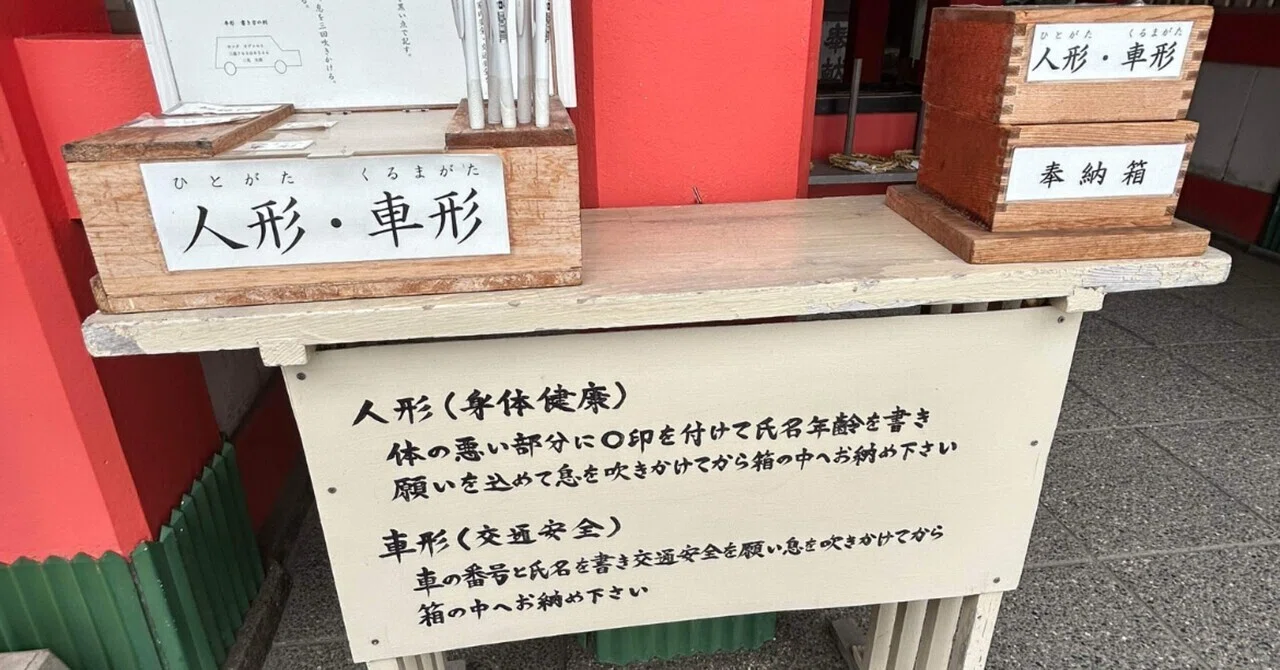 息を三回吹きかける。
黒い点で記す。
車形 書き方の例
奉献
ひとがた くるまがた
人形・車形
ひとがた くるまがた
人形・車形
奉納箱
人形(身体健康)
体の悪い部分に〇印を付けて氏名年齢を書き
願いを込めて息を吹きかけてから箱の中へお納め下さい
車形(交通安全)
車の番号と氏名を書き交通安全を願い息を吹きかけてから
箱の中へお納め下さい